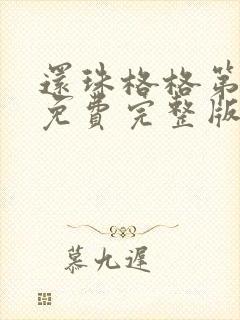 還珠格格第
免費完整版
慕九遲